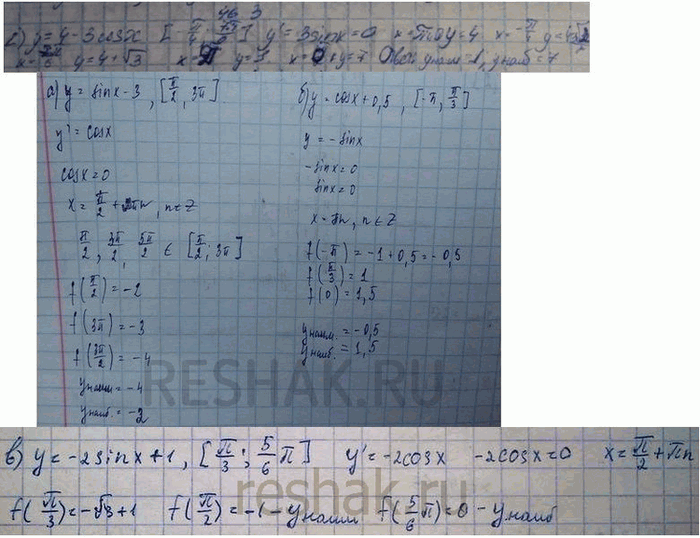 y = 4 - 3cosx y' = 3sinx = 0
y = 4 + √3
а) y = sinx - 3, [π/2, 3π]
y' = cosx
cosx = 0
x = π/2 + πn, n ∈ Z
π/2, 3π/2, 5π/2 ∈ [π/2; 3π]
f(π/2) = -2
f(3π) = -3
f(3π/2) = -4
yнаим = -4
yнаиб. = -2
б) y = cosx + 0,5, [-π, π/3]
y = -sinx
-sinx = 0
sinx = 0
x = πn, n ∈ Z
f(-π) = -1 + 0,5 = -0,5
f(π/3) = 1
f(0) = 1,5
yнаим. = -0,5
yнаиб. = 1,5
RESHAK.RU
в) y = -2sinx + 1, [π/3; 5/6 π] y' = -2cosx -2cosx = 0 x = π/2 + πn
f(π/3) = -√3 + 1 f(π/2) = -1 - yнаим f(5/6 π) = 0 - yнаиб
reshak.ru